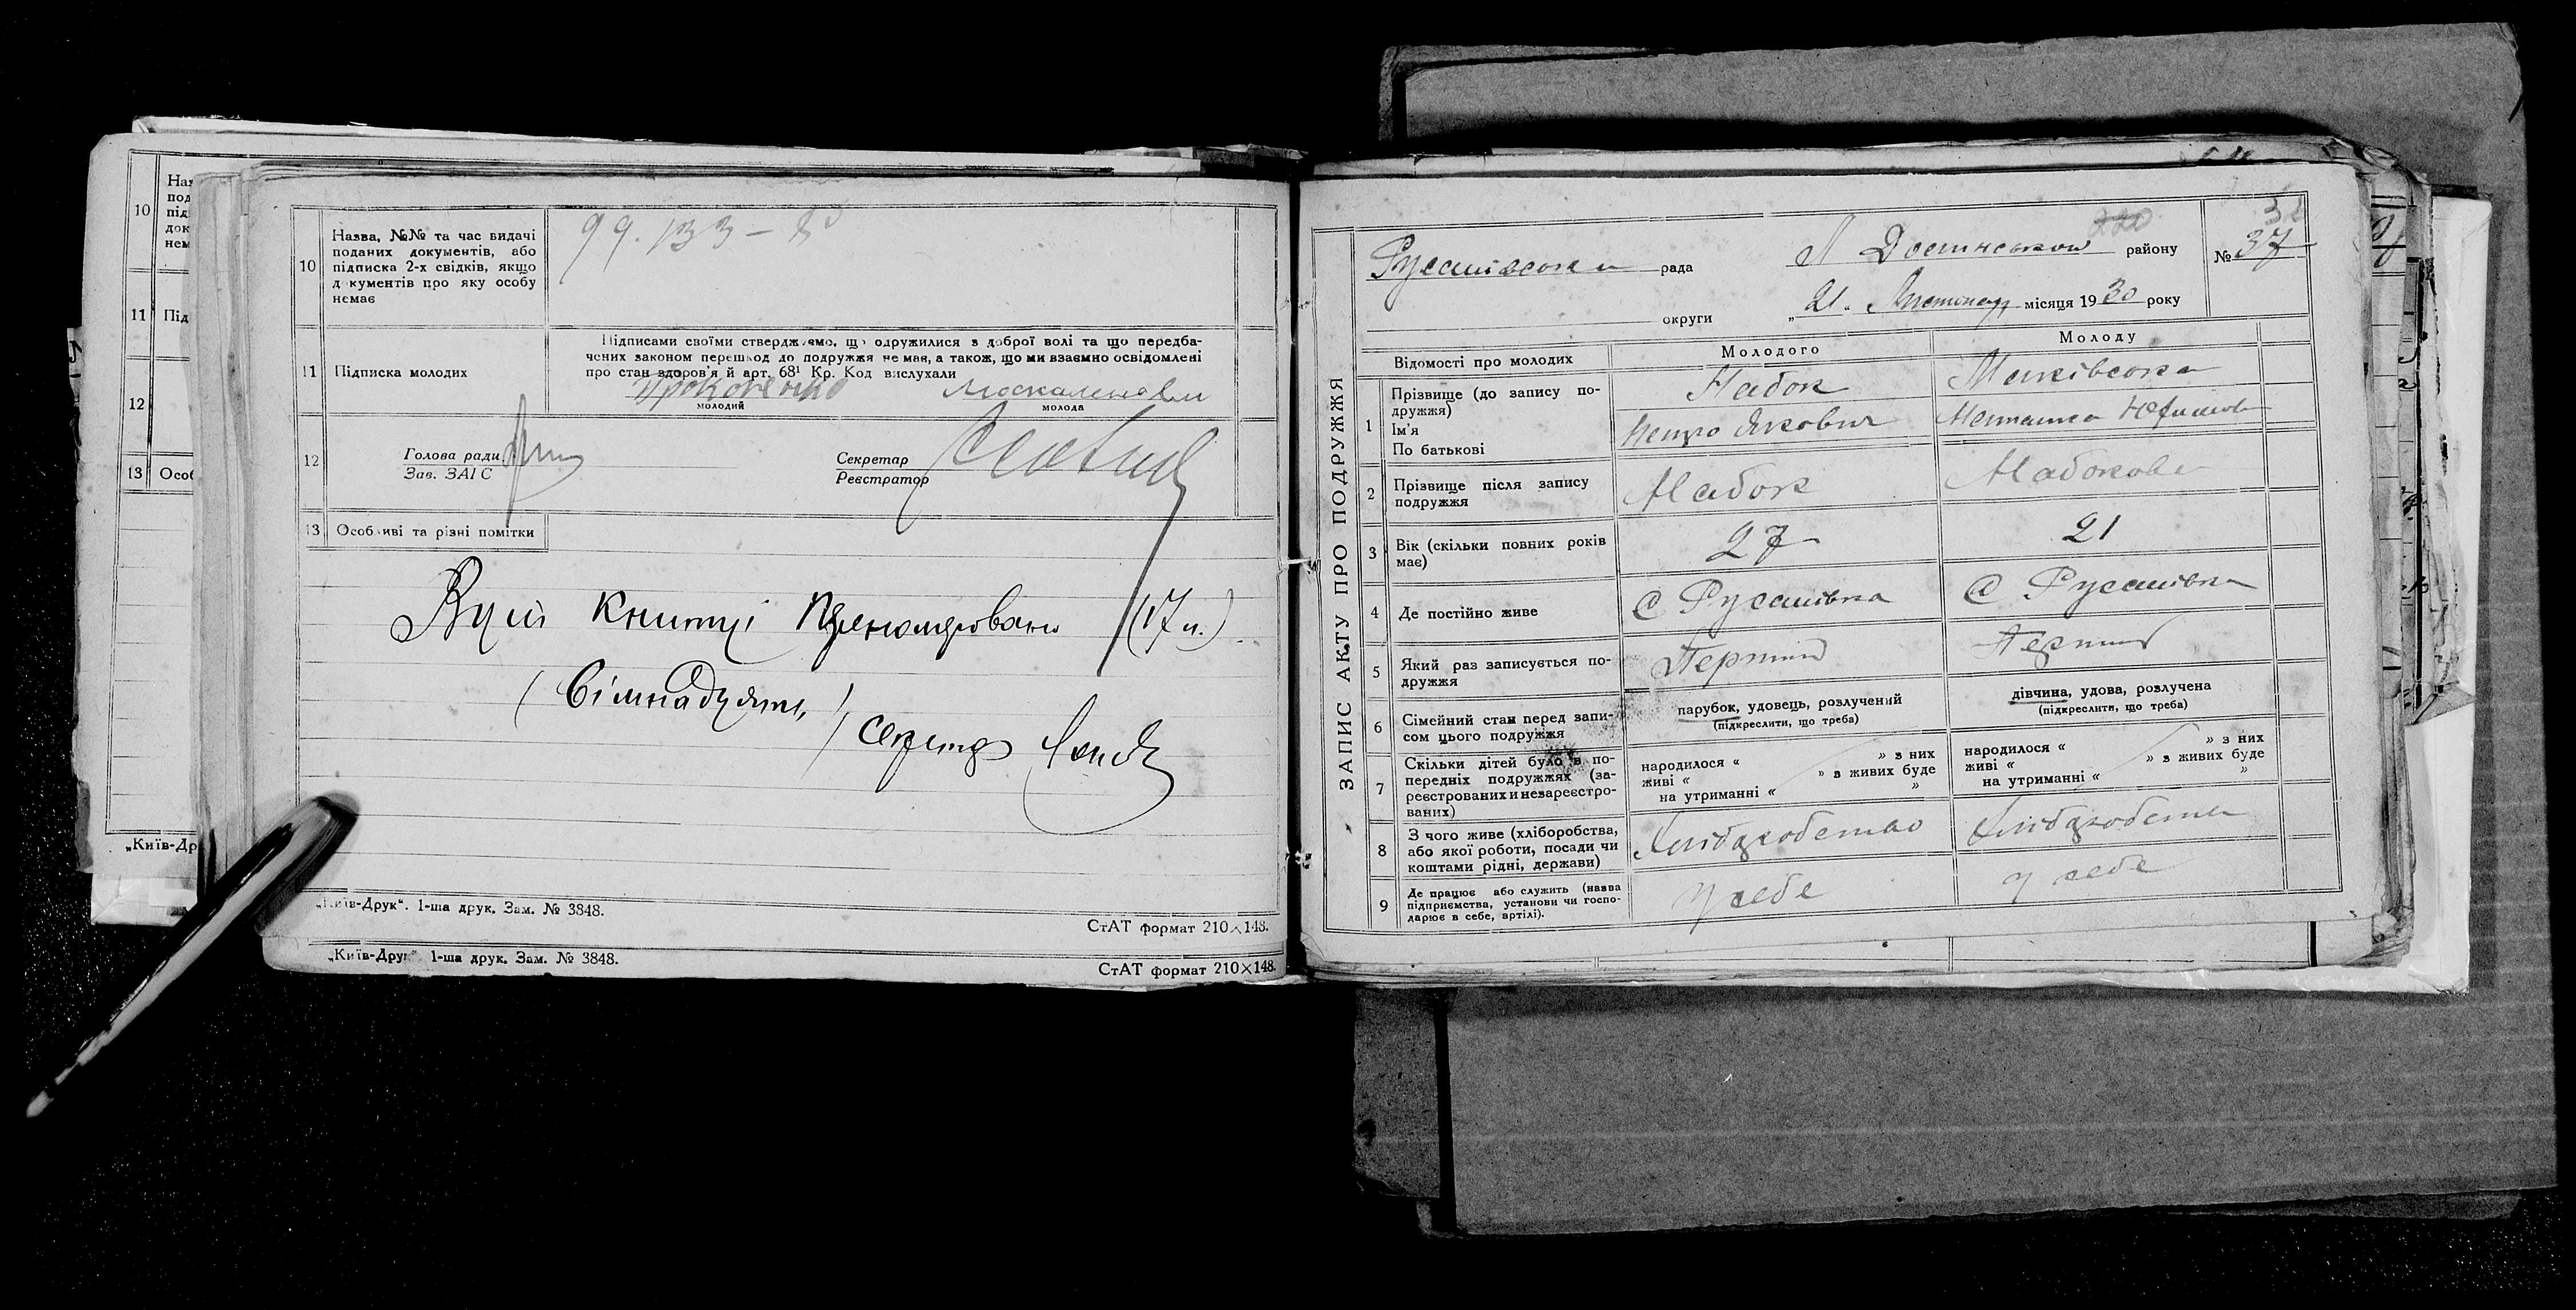 10
11
12
13
Наз
под
під
док
нем
Під
Особ
„Київ-Др
10
Назва, №№ та час видачі
поданих документів, або
підписка 2-х свідків, якщо
документів про яку особу
немає
99. 133 –
11
Підписка молодих
Підписами своїми стверджуємо, що одружилися з доброї волі та що передба-
чених законом перешкод до подружжя не має, а також, що ми взаємно освідомлені
про стан здоров'я й арт. 68¹ Кр. Код вислухали
Прокопенко
молодий
молода
12
Голова ради
Зав. ЗАГС
Секретар
Реєстратор
13
Особливі та різні помітки
книжці пронумеровано (17 л.)
(Сімнадцять)
„Київ-Друк“. 1-ша друк. Зам. № 3848.
СтАТ формат 210×148.
„Київ-Друк“ 1-ша друк. Зам. № 3848.
СтАТ формат 210×148.
ЗАПИС АКТУ ПРО ПОДРУЖЖЯ
Русанівська рада
району
№ 37
округи
„21. Листопад місяця 1930 року
Відомості про молодих
Молодого
Молоду
1
Прізвище (до запису по-
дружжя)
Ім'я
По батькові
Набок
Петро Якович
2
Прізвище після запису
подружжя
Набок
Набокова
3
Вік (скільки повних років
має)
27
21
4
Де постійно живе
С Русанівка
С Русанівка
5
Який раз записується по-
дружжя
Перший
Перший
6
Сімейний стан перед запи-
сом цього подружжя
парубок, удовець, розлучений
(підкреслити, що треба)
дівчина, удова, розлучена
(підкреслити, що треба)
7
Скільки дітей було в по-
передніх подружжях (за-
реєстрованих и незареєстро-
ваних)
народилося “ ” з них
живі “ ” з живих буде
на утриманні “ ”
народилося “ ” з них
живі “ ” з живих буде
на утриманні “ ”
8
З чого живе (хліборобства,
або якої роботи, посади чи
коштами рідні, держави)
Хліборобство
Хліборобства
9
Де працює або служить (назва
підприємства, установи чи госпо-
дарює в себе, артілі).
у себе
у себе